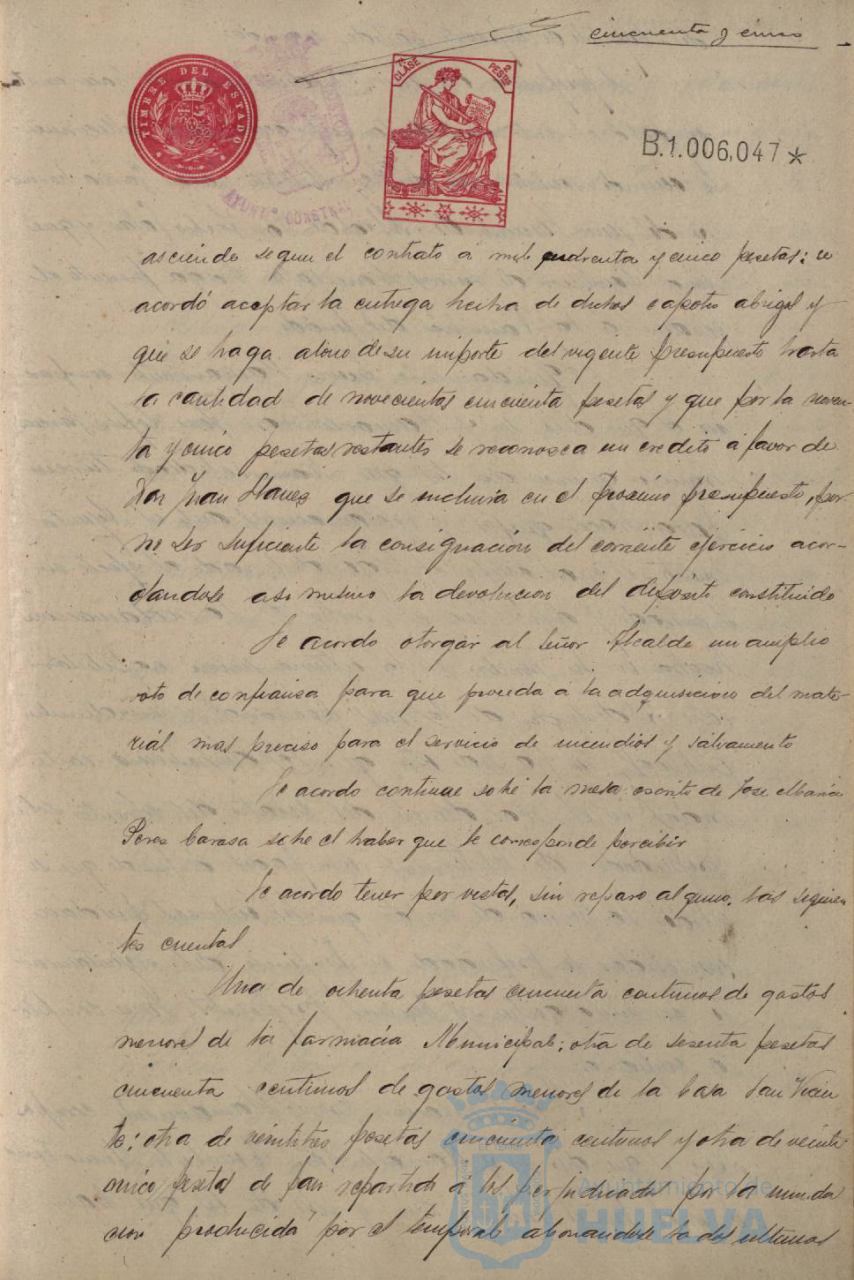 cincuenta y cinco
TIMBRE DEL ESTADO
CLASE
2 PESTAS
AYUNTº CONSTNAL
B.1.006,047*
asciende segun el contrato a mil cuarenta y cinco pesetas: se
acordó aceptar la entrega hecha de dichos capotes abrigos y
que se haga abono de su importe del vigente presupuesto hasta
la cantidad de novecientas cincuenta pesetas y que por la noven-
ta y cinco pesetas restantes se reconosca un credito a favor de
Don Juan Llanes que se incluira en el proximo presupuesto, por
no ser suficiente la consignación del corriente ejercicio acor-
dandose asi mismo la devolucion del deposito constituido
Se acordo otorgar al Señor Alcalde un amplio
voto de confiansa para que proceda a la adquisicion del mate-
rial mas preciso para el servicio de incendios y salvamento
Se acordo continue sobre la mesa escrito de Jose Maria
Peres Carasa sobre el haber que le corresponde percibir
Se acordo tener por vistas, sin reparo alguno, las siguien
tes cuentas
Una de ochenta pesetas cincuenta centimos de gastos
menores de la farmacia Municipal; otra de sesenta pesetas
cincuenta centimos de gastos menores de la Casa San Vicen
te; otra de veintitres pesetas cincuenta centimos y otra de veinti
cinco pesetas de pan repartido á los perjudicados por la inunda
cion producida por el temporal abonandose la dos ultimas
Ayuntamiento de
HUELVA